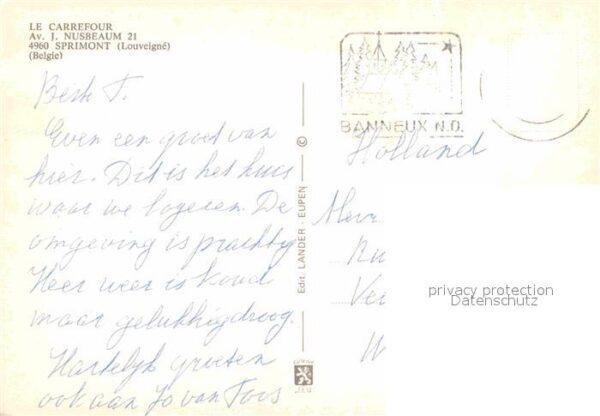 LE CARREFOUR
Av. J. NUSBEAUM 21
4960 SPRIMONT (Louveigné)
(Belgie)
Beste T.
Even een groet van
hier. Dit is het huis
waar we logeren. De
omgeving is prachtig
Heer weer is koud
maar gelukkig droog.
Hartelijk groeten
ook aan Jo van Toos
Edit. LANDER - EUPEN
©
BANNEUX N.D.
Holland
Mevr
Ru
Ve
privacy protection
Datenschutz